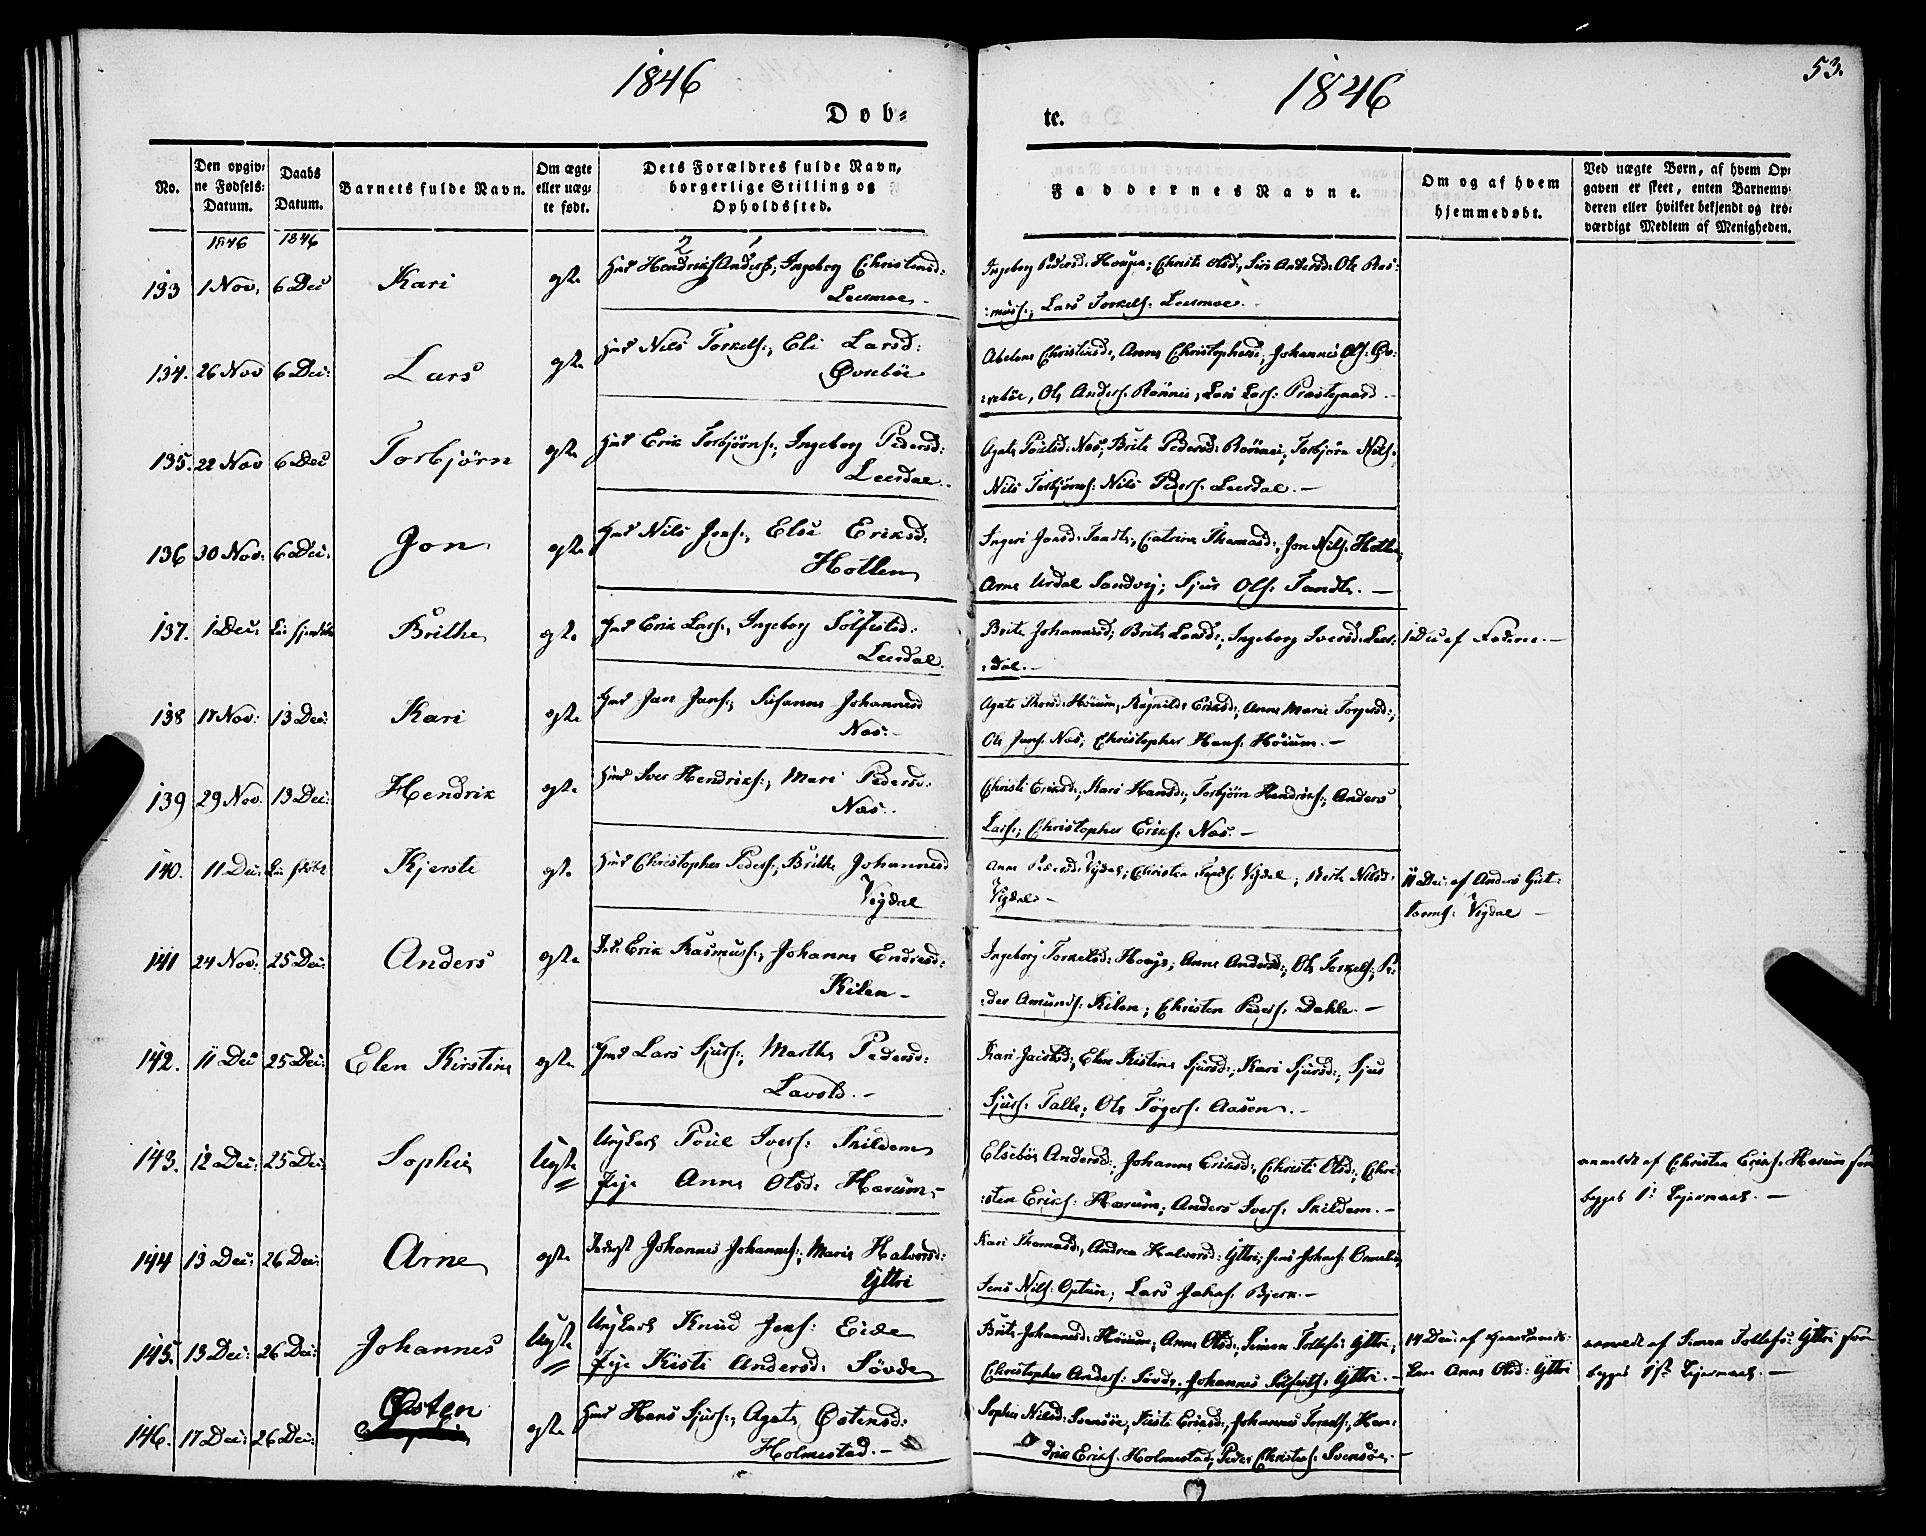 1846
1846
53.
Døb-
te.
No.
Den opgiv-
ne Fødsels-
Datum.
Daabs
Datum.
Barnets fulde Navn.
Om ægte
eller uæg-
te født.
Dets Forældres fulde Navn,
borgerlige Stilling og
Opholdssted.
Faddernes Navne.
Om og af hvem
hjemmedøbt.
Ved uægte Børn, af hvem Op-
gaven er skeet, enten Barnemo-
deren eller hvilket bekjendt og tro-
værdigt Medlem af Menigheden.
1846 1846
2 1
133 1 Nov. 6 Dec Kari egte Hmd Hendrik Anders:, Ingeborg Christensd:
Leermoe
Ingeborg Pedersd: Houge; Christi Olsd:, Siri Andersd: Ole Ras-
:muss:, Lars Torkels: Leermoe.
134. 26 Nov 6 Dec: Lars egte Hmd Nils Torkels:, Eli Larsd:
Øvrebøe
Abelone Christensd:, Anna Christophersd:, Johannes Ols: Øv-
:rebøe, Ole Anders: Rønnei, Lars Lars: Præstegaard. -
135. 22 Nov 6 Dec Torbjørn egte Hmd Erik Torbjørns:, Ingeborg Pedersd:
Leerdal.
Agate Poulsd: Næs; Brite Pedersd: Rønnei; Torbjørn Nils:,
Nils Torbjørns: Nils Peders: Leerdal. -
136 30 Nov: 6 Dec: Jon egte Hmd Nils Jons:, Else Eriksd:
Hotlen
Ingeri Jonsd: Tandle, Catrine Thomasd:, Jon Nils: Hotlen,
Arne Urdal Sandvig; Sjur Ols: Tandle. -
137. 1 Dec: Brithe egte Hmd Erik Lars:, Ingeborg Sølfestsd:
Leerdal.
Brite Johannesd; Brite Larsd:, Ingeborg Iversd: Leer-
:dal. -
1 Dec af Faderne. -
138 17 Nov: 13 Dec: Kari egte Hmd Jan Jans:, Susanne Johannesd
Næs. -
Agate Thorsd: Høium, Ragnilde Eriksd:, Anne Marie Torgersd:,
Ole Jans: Næs, Christopher Hans: Høium. -
139 29 Nov. 13 Dec: Hendrik egte Hmd Iver Hendriks:, Mari Pedersd:
Næs.
Christi Eriksd:, Kari Hansd:, Torbjørn Hendriks:, Anders
Lars:; Christopher Eriks: Næs. -
140. 11 Dec: Kjersti egte Hmd Christopher Peders:, Brithe Johannesd
Vigdal
Anne Pedersd: Vigdal; Christen Vigdal; Berte Nilsd:
Vigdal -
11 Dec: af Anders Gut-
torms: Vigdal -
141 24 Nov: 25 Dec: Anders egte Erik Rasmuss:, Johanne Endresd:
Kilen -
Ingeborg Torkelsd: Houge; Anne Andersd:, Ole Torkels:, Pe-
der Amunds: Kilen; Christen Peders: Dahle. -
142. 11 Dec 25 Dec: Elen Kirstine egte Hmd Lars Sjurs:, Marthe Pedersd:
Lavold. -
Kari Elen Kistine Sjursd:, Kari Sjursd:, Sjur
Sjurs: Talle; Ole Tøgers: Aasen. -
143. 12 Dec: 25 Dec: Sophie Uegte Ungkarl Poul Ivers: Skildem
Pige Anne Olsd: Hærum -
Elsebøe Andersd:, Johanne Eriksd:, Christi Olsd:, Chri-
:sten Eriks: Hærum; Anders Ivers: Skildem. -
anmeldt af Christen Eriks: Hærum for
begges 1ste Leiermaal. -
144 13 Dec: 26 Dec: Arne egte Johannes Johannes:, Marie Halvorsd:
Yttri
Kari Thomasd:, Andrea Halvorsd: Yttri; Jens Johans:
Jens Nils: Optun; Lars Johans: Bjerk. -
145. 13 Dec: 26 Dec: Johannes Uegte Ungkarl Knud Jens: Eide
Pige Kisti Andersd: Søvde
Brite Johannesd: Høium, Anne Olsd:, Simon Tollefs: Yttri,
Christopher Anders: Søvde, Johannes Sølfests: Yttri. -
14 Dec: af
Anne Olsd: Yttri
anmeldt af Simon Tollefs: Yttri for
begges 1ste Leiermaal. -
146. 17 Dec: 26 Dec: Østen egte Hmd Hans Sjurs:, Agate Østensd:
Holmestad. -
Sophie Nilsd: Svensøe, Kisti Eriksd:, Johannes Hen-
drik Eriks: Holmestad, Peder Christens: Svensøe -